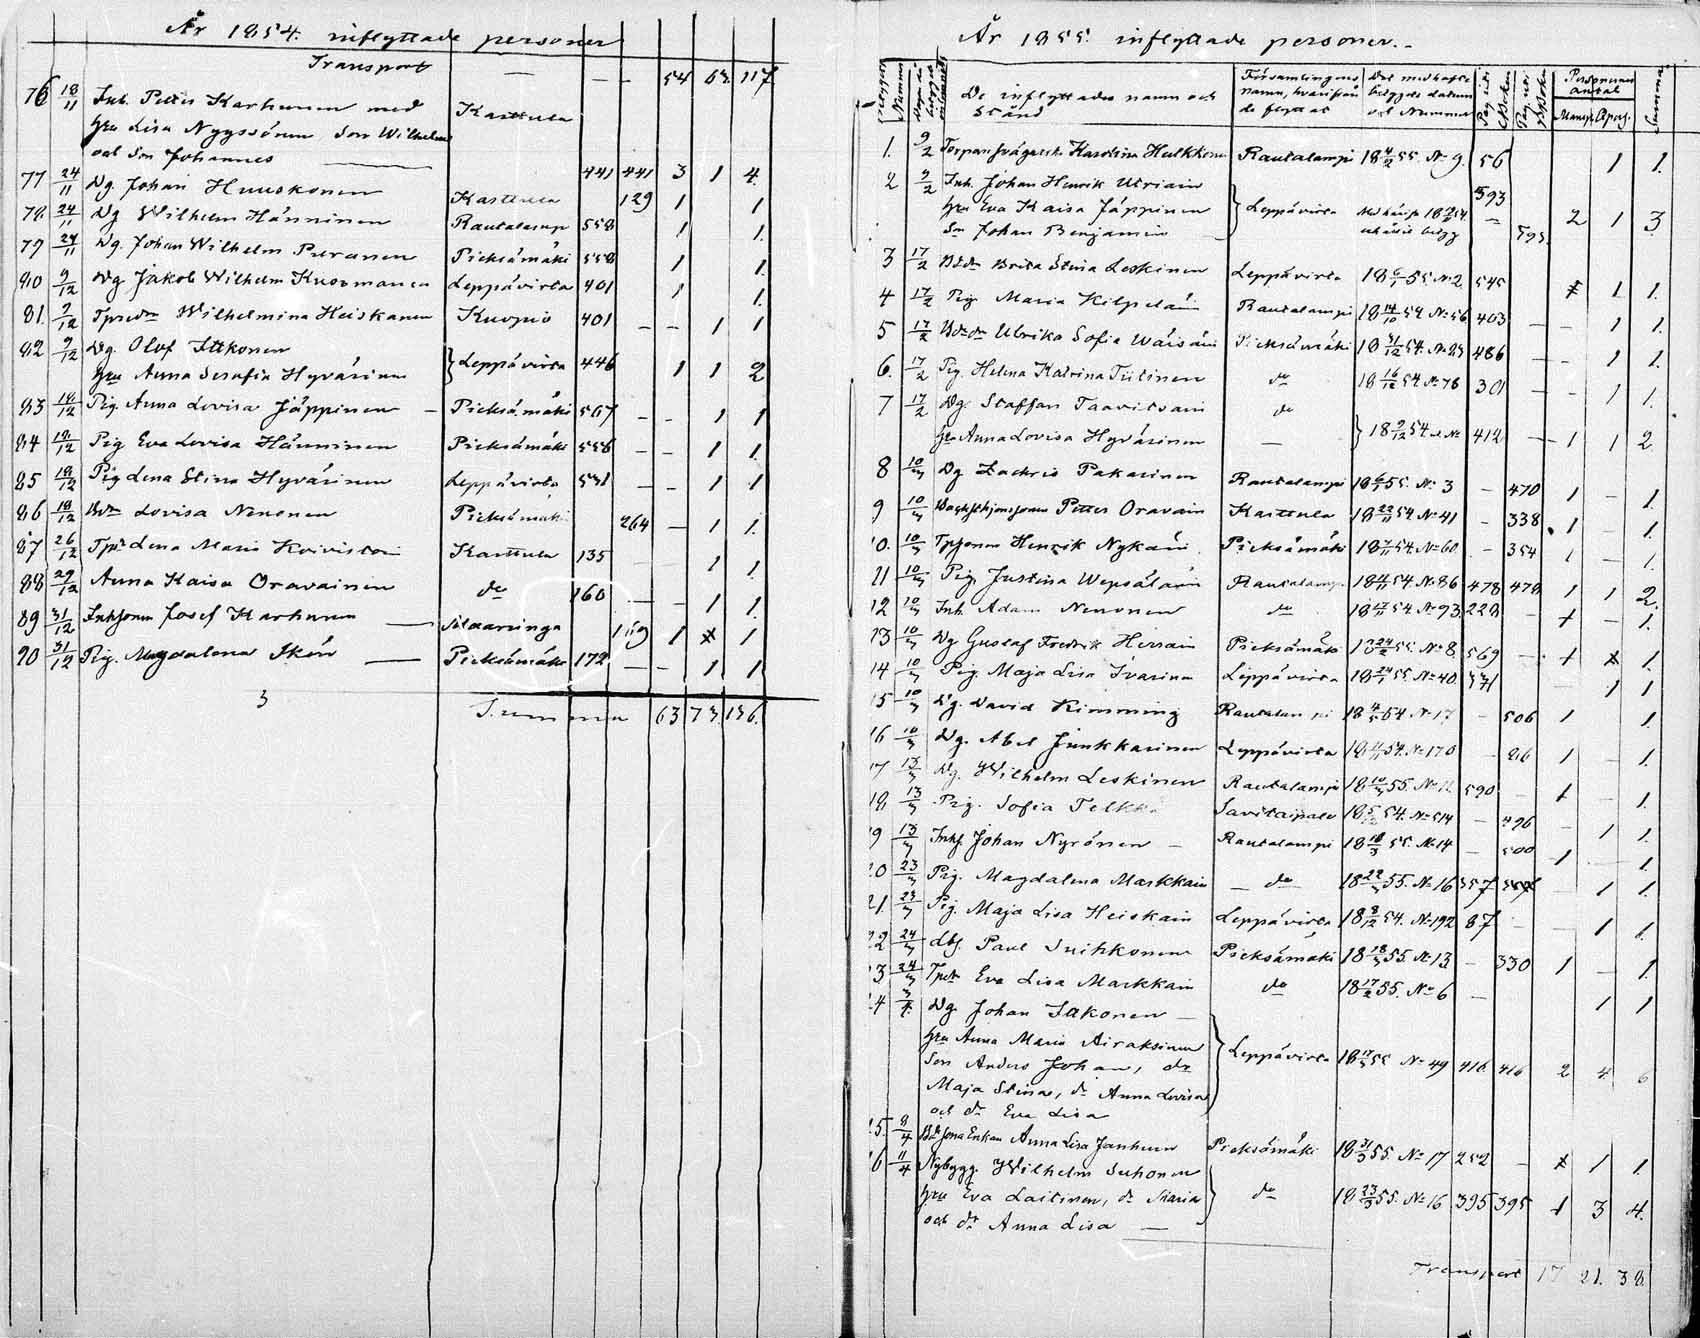 År 1854. inflyttade personer
Transport — — — 54 63 117
76 18/11 Inh. Petter Karhunen med
hru Lisa Nyyssönen Son Wilhelm Karttula
och Son Johannes — 441 441 3 1 4
77 24/11 Dg. Johan Huuskonen Karttula 129 1 1
78 24/11 Dg Wilhelm Hänninen Rautalamp 558 1 1
79 24/11 Dg. Johan Wilhelm Puranen Pieksämäki 558 1 1
80 9/12 Dg Jakob Wilhelm Kuosmanen Leppävirta 401 1 1
81. 9/12 Wilhelmina Heiskanen Kuopio 401 — — 1 1
82 9/12 Dg. Olof Ittkonen
hru Anna Serafia Hyvärinen } Leppävirta 446 1 1 2
83 18/12 Pig. Anna Lovisa Jäppinen — Pieksämäki 507 — — 1 1
84 18/12 Pig Eva Lovisa Hänninen Pieksämäki 556 — — 1 1
85 18/12 Pig Lena Stina Hyvärinen Leppävirta 531 — — 1 1
86 18/12 Lovisa Nenonen Pieksämäki 264 — 1 1
87 26/12 Lena Maria Koivistoin Karttula 135 — 1 1
88 29/12 Anna Kaisa Oravainen do 160 — — 1 1
89 31/12 Josef Karhunen — 159 1 x 1
90 31/12 Pig. Magdalena Ikön — Pieksämäki 172 — — 1 1
3 Summa 63 73 136.
År 1855. inflyttade personer.
Nummer
De inflyttades namn och Stånd
Församlingens namn, hvarifrån de flyttat
Det medhafde betygets datum och Nummer
Personernes antal
Mansp. Qvp.
Summa
1. 9/2 Karolina Hulkkonen Rautalampi 18 4/2 55. No 9. 56 1 1.
2 9/2 Inh. Johan Henrik Utriain
hru Eva Kaisa Jäppinen } Leppävirta 593 — 2 1 3
Son Johan Benjamin — 593.
3 17/2 Brita Stina Leskinen Leppävirta 18 6/1 55 No 2 545 x 1 1.
4 17/2 Pig. Maria Kilpeläin Rautalampi 18 14/10 54 No 56 403 — — 1 1.
5 17/2 Ulrika Sofia Wäisäin Pieksämäki 18 31/12 54. No 23 486 — 1 1.
6. 17/2 Pig. Helena Katrina Tiitinen do 18 16/12 54 No 78 301 — — 1 1.
7 17/2 Dg. Staffan Taavitsain do
hru Anna Lovisa Hyvärinen — } 18 9/12 54 412 — 1 1 2.
8 10/3 Dg Zachris Pakarinen Rautalampi 18 6/3 55. No 3 — 470 1 — 1.
9 10/3 Petter Oravain Karttula 18 22/11 54 No 41 — 338 1 — 1.
0. 10/3 Henrik Nykäin Pieksämäki 18 7/11 54. No 60 — 354 1 — 1.
11 10/3 Pig. Justina Wepsäläin Rautalamp 18 4/11 54. No 86 478 478 1 1 2.
12 10/3 Inh. Adam Nenonen do 54. No 93. 228 — 1 — 1.
13 10/3 Dg Gustaf Fredrik Hirsain Pieksämäki 18 24/2 55. No 8. 569 — 1 x 1.
14 10/3 Pig. Maja Lisa Ivarinen Leppävirta 18 24/2 55. No 40 571 — 1 1
15 10/3 Dg. David Kimming Rautalampi 18 4/11 54 No 17 — 506 1 1.
16 10/3 Dg. Abel Junkkarinen Leppävirta 54. No 170 — 26 1 — 1.
17 13/3 Dg. Wilhelm Leskinen Rautalampi 18 10/3 55. No 11 590 — 1 — 1.
18 13/3 Pig. Sofia Telkkä Savitaipale 54. No 514 — 496 — 1 1.
19 13/3 Inhf Johan Nyrönen — Rautalampi 18 18/3 55. No 14 — 500 1 — 1.
20 23/3 Pig. Magdalena Markkain — do 18 22/3 55. No 16 357 — 1 1.
21. 23/3 Pig. Maja Lisa Heiskain Leppävirta 18 8/12 54. No 192 87 — 1 1.
22 24/3 Paul Suihkonen Pieksämäki 18 18/3 55. No 13 — 330 1 — 1.
3 24/3 Eva Lisa Markkain do 18 17/2 55. No 6 — 1 1
4 3/4 Dg. Johan Itkonen —
hru Anna Maria Airaksinen
Son Anders Johan, dr } Leppävirta 55 No 49 416 416 2 4 6
Maja Stina, dr Anna Lovisa
och dr Eva Lisa
5. 8/4 Enkan Anna Lisa Janhunen Pieksämäki 18 31/3 55. No 17 252 — x 1 1
6 11/4 Nybygg. Wilhelm Suhonen
hru Eva Laitinen, dr Maria } do 18 23/3 55. No 16 395 395 1 3 4.
och dr Anna Lisa —
Transport 17 21. 38.